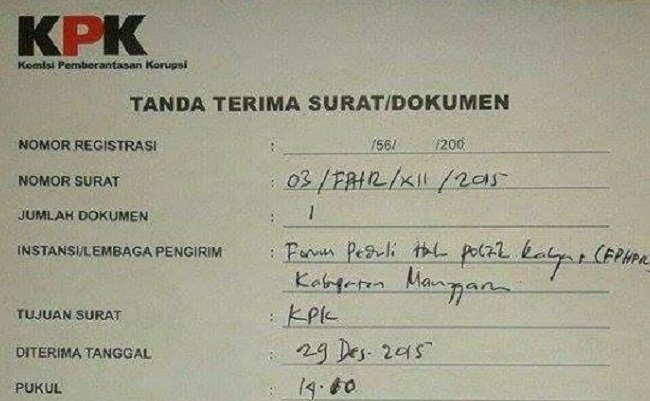 KPK
Komisi Pemberantasan Korupsi
TANDA TERIMA SURAT/DOKUMEN
NOMOR REGISTRASI : /56/ /200
NOMOR SURAT : 03/FPHR/XII/2015
JUMLAH DOKUMEN : 1
INSTANSI/LEMBAGA PENGIRIM : Forum Peduli Hak politik (FPHPR)
Kabupaten Manggarai
TUJUAN SURAT : KPK
DITERIMA TANGGAL : 29 Des. 2015
PUKUL :